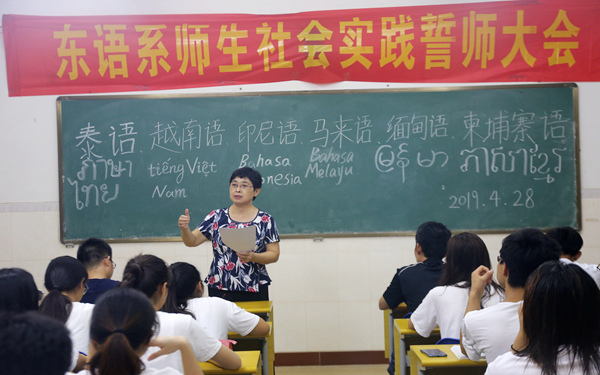 东语系师生社会实践誓师大会
泰语 越南语 印尼语 马来语 缅甸语 柬埔寨语
ภาษา tiếng Việt Bahasa Bahasa မြန်မာ ភាសាខ្មែរ
ไทย Nam onesia Melayu
2019.4.28